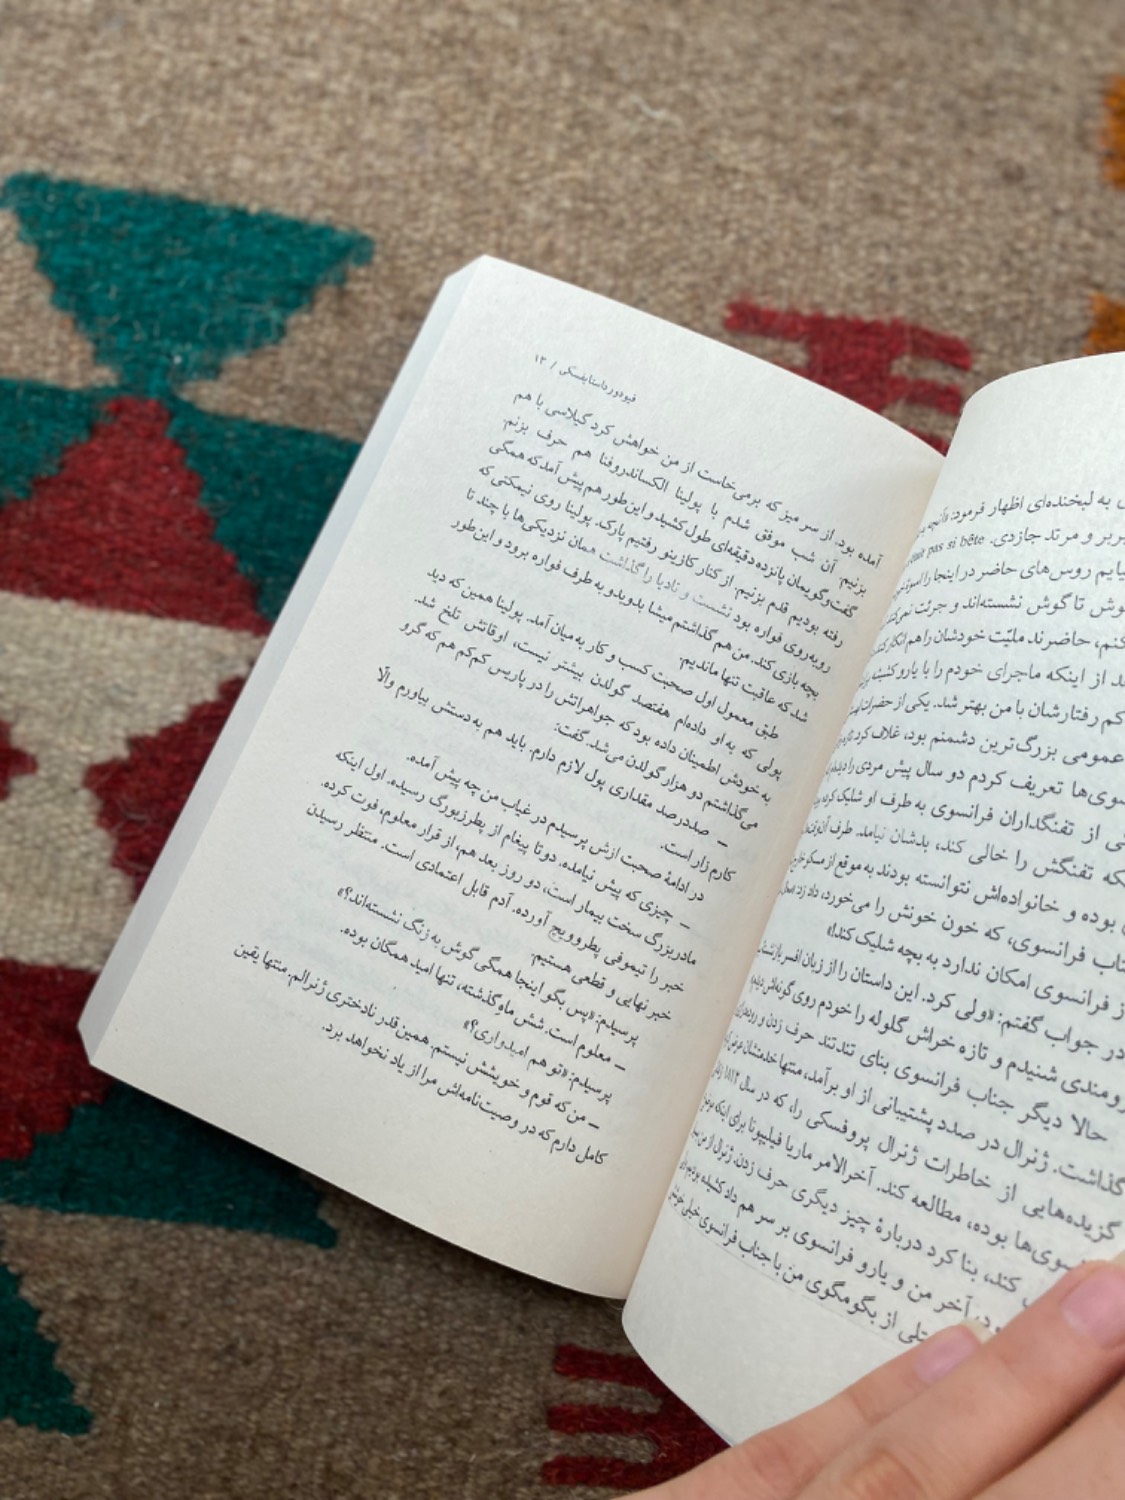 ی به لبخنده‌ای اظهار فرمود: «آنچه
بربر و مرتد جازدی. était pas si bête
بیایم روس‌های حاضر در اینجا را
گوش تا گوش نشسته‌اند و جرئت نمی‌کنند
کنم، حاضرند ملیّت خودشان را هم انکار کنند
د از اینکه ماجرای خودم را با یارو کشیشه
کم رفتارشان با من بهتر شد. یکی از حضرات
عمومی بزرگ‌ترین دشمنم بود، غلاف کرد
سوی‌ها تعریف کردم دو سال پیش مردی را دیده‌ام
ی از تفنگداران فرانسوی به طرف او شلیک کرده
که تفنگش را خالی کند، بدشان نیامد. طرف آن‌وقت
بوده و خانواده‌اش نتوانسته بودند به موقع از مسکو خارج
ناب فرانسوی، که خون خونش را می‌خورد، داد زد:
از فرانسوی امکان ندارد به بچه شلیک کند!»
در جواب گفتم: «ولی کرد. این داستان را از زبان افسر بازنشسته
رومندی شنیدم و تازه خراش گلوله را خودم روی گونه‌اش دیدم
حالا دیگر جناب فرانسوی بنای تندتند حرف زدن و
گذاشت. ژنرال در صدد پشتیبانی از او برآمد، منتها خدمتشان عرض کردم
گزیده‌هایی از خاطرات ژنرال پروفسکی را، که در سال ۱۸۱۲
سوی‌ها بوده، مطالعه کند. آخرالامر ماریا فیلیپونا برای اینکه
کند، بنا کرد دربارهٔ چیز دیگری حرف زدن. ژنرال از من
ود، آخر من و یارو فرانسوی بر سر هم داد کشیده بودیم
ستلی از بگومگوی من با جناب فرانسوی خیلی خوشش
فیودور داستایفسکی / ۱۳
آمده بود. از سر میز که برمی‌خاست از من خواهش کرد گیلاسی با هم
بزنیم. آن شب موفق شدم با پولینا الکساندروفنا هم حرف بزنم.
گفت‌وگویمان پانزده دقیقه‌ای طول کشید و این‌طور هم پیش آمد که همگی
رفته بودیم قدم بزنیم. از کنار کازینو رفتیم پارک. پولینا روی نیمکتی که
روبه‌روی فواره بود نشست و نادیا را گذاشت همان نزدیکی‌ها با چند تا
بچه بازی کند. من هم گذاشتم میشا بدوبدو به طرف فواره برود و این‌طور
شد که عاقبت تنها ماندیم.
طبق معمول اول صحبت کسب و کار به میان آمد. پولینا همین که دید
پولی که به او داده‌ام هفتصد گولدن بیشتر نیست، اوقاتش تلخ شد.
به خودش اطمینان داده بود که جواهراتش را در پاریس کم‌کم هم که گرو
می‌گذاشتم دو هزار گولدن می‌شد. گفت:
– صددرصد مقداری پول لازم دارم. باید هم به دستش بیاورم والّا
کارم زار است.
در ادامهٔ صحبت ازش پرسیدم در غیاب من چه پیش آمده.
– چیزی که پیش نیامده. دوتا پیغام از پطرزبورگ رسیده. اول اینکه
مادربزرگ سخت بیمار است، دو روز بعد هم، از قرار معلوم، فوت کرده.
خبر را تیموفی پطروویچ آورده. آدم قابل اعتمادی است. منتظر رسیدن
خبر نهایی و قطعی هستیم.
پرسیدم: «پس بگو اینجا همگی گوش به زنگ نشسته‌اند؟»
– معلوم است. شش ماهِ گذشته، تنها امید همگان بوده.
پرسیدم: «تو هم امیدواری؟»
– من که قوم و خویشش نیستم. همین‌قدر نادختری ژنرالم. منتها یقین
کامل دارم که در وصیت‌نامه‌اش مرا از یاد نخواهد برد.